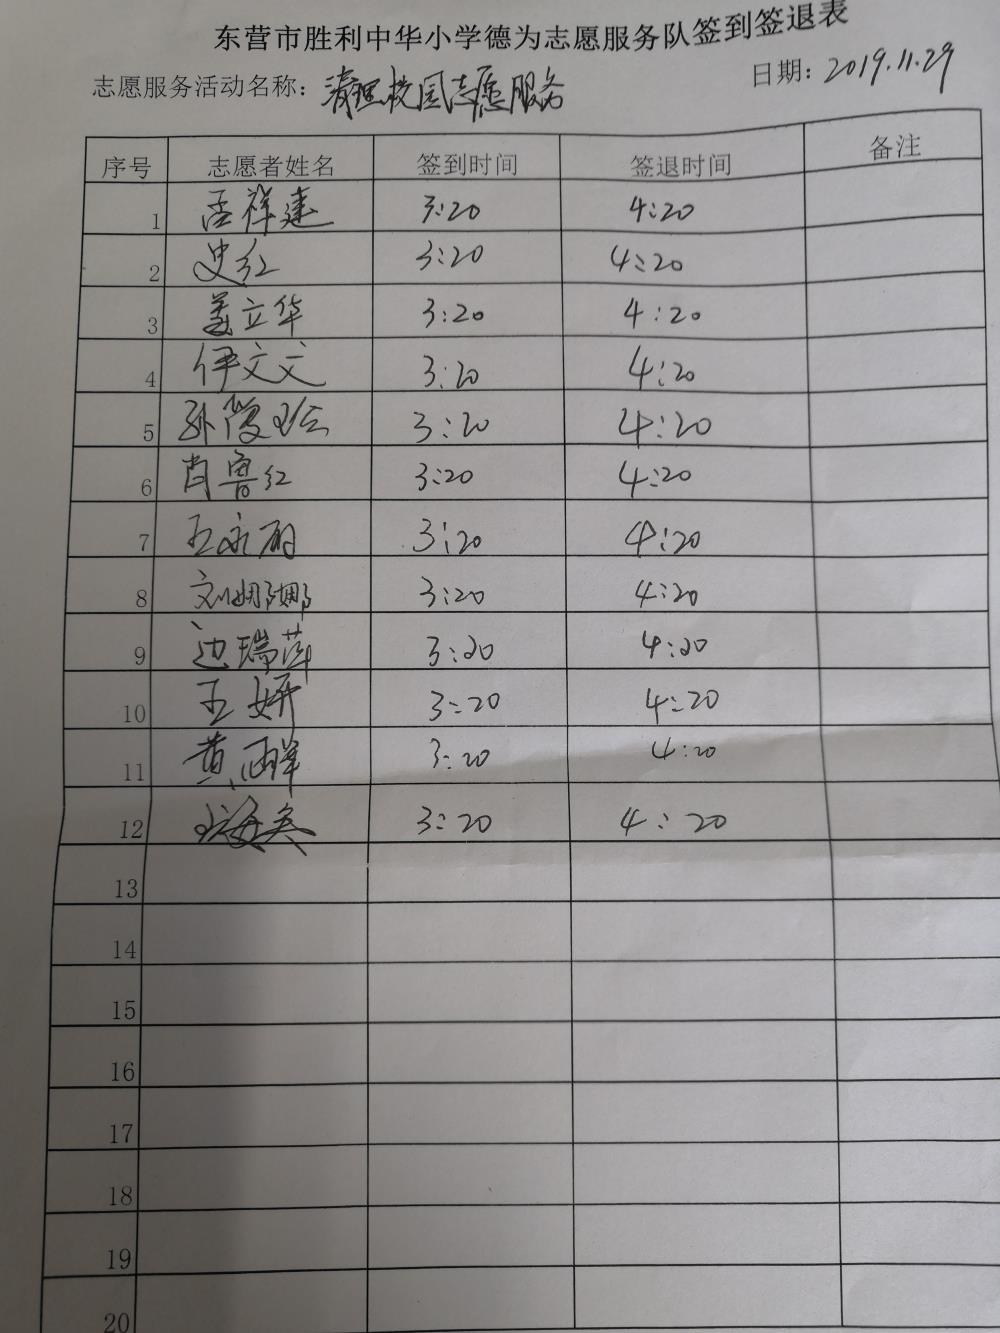 东营市胜利中华小学德为志愿服务队签到签退表
志愿服务活动名称：清理校园志愿服务 日期：2019.11.29
序号 志愿者姓名 签到时间 签退时间 备注
1 孟祥建 3:20 4:20
2 史红 3:20 4:20
3 姜立华 3:20 4:20
4 伊文文 3:20 4:20
5 孙霞 3:20 4:20
6 肖鲁红 3:20 4:20
7 王永丽 3:20 4:20
8 刘娜娜 3:20 4:20
9 边瑞莲 3:20 4:20
10 王妍 3:20 4:20
11 黄 3:20 4:20
12 3:20 4:20
13
14
15
16
17
18
19
20